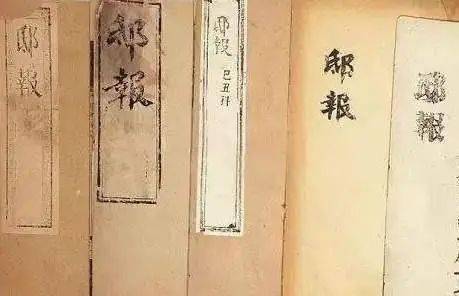 邸報
邸報
邸報
己丑
邸報
邸報